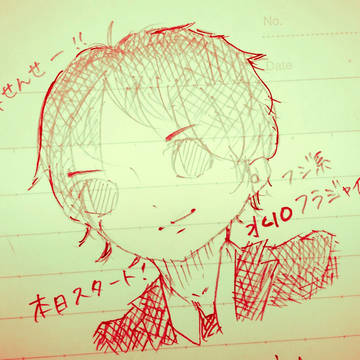 No.
Date
せんせー!!
フジ系
水10
フラジャイ
本日スタート!